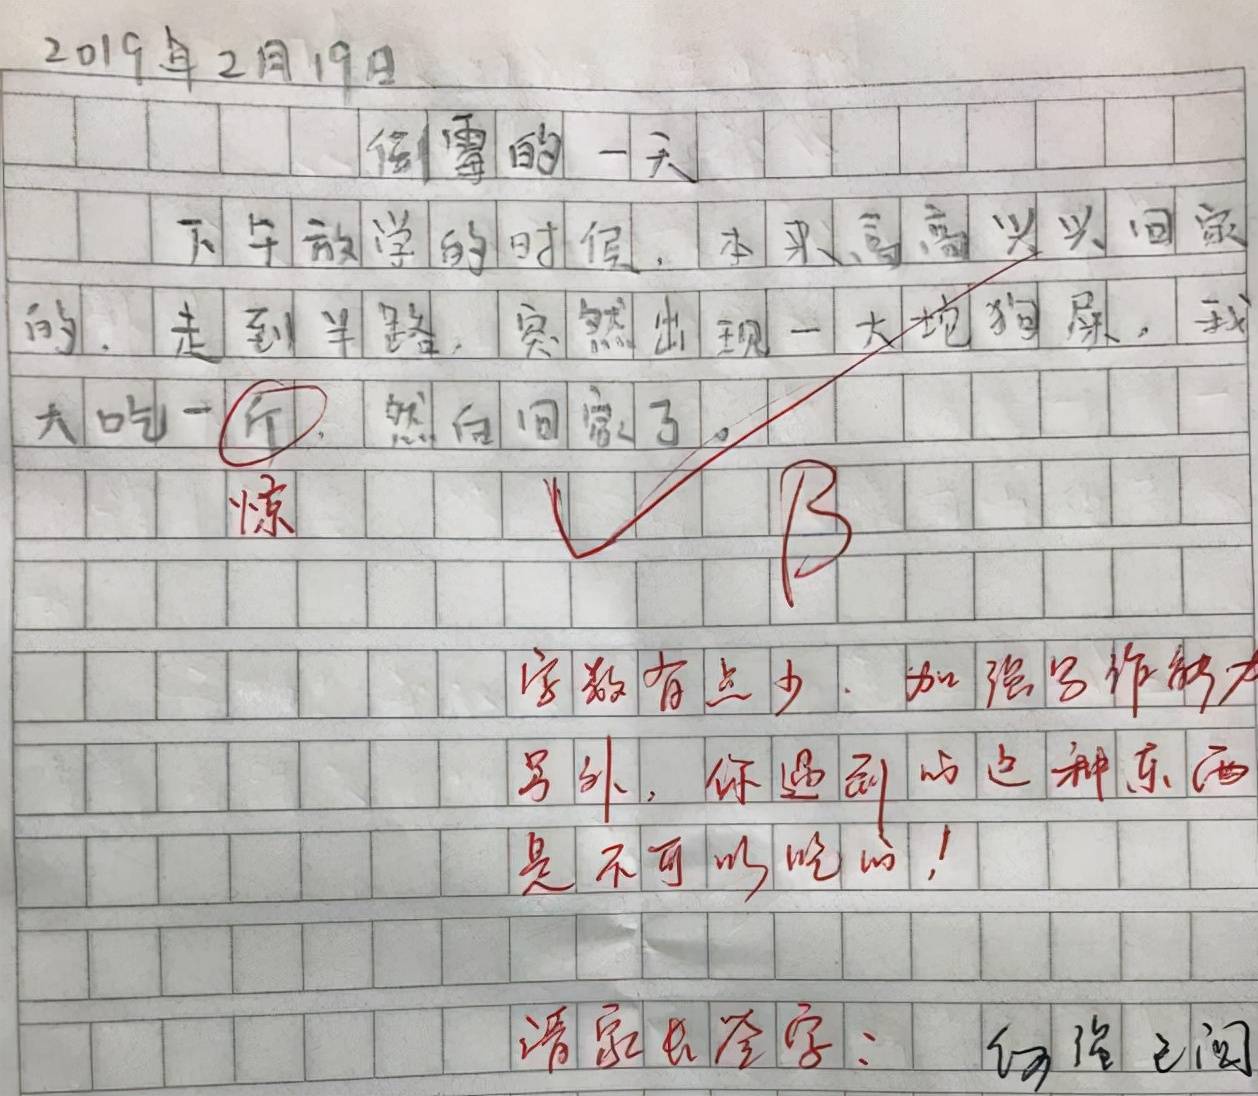 2019年2月19日
倒霉的一天
下午放学的时候,本来高高兴兴回家
的,走到半路,突然出现一大坨狗屎,我
大吃一斤,然后回家了。
惊
B
字数有点少.加强写作能力
另外,你遇到的这种东西
是不可以吃的!
请家长签字: 何强已阅